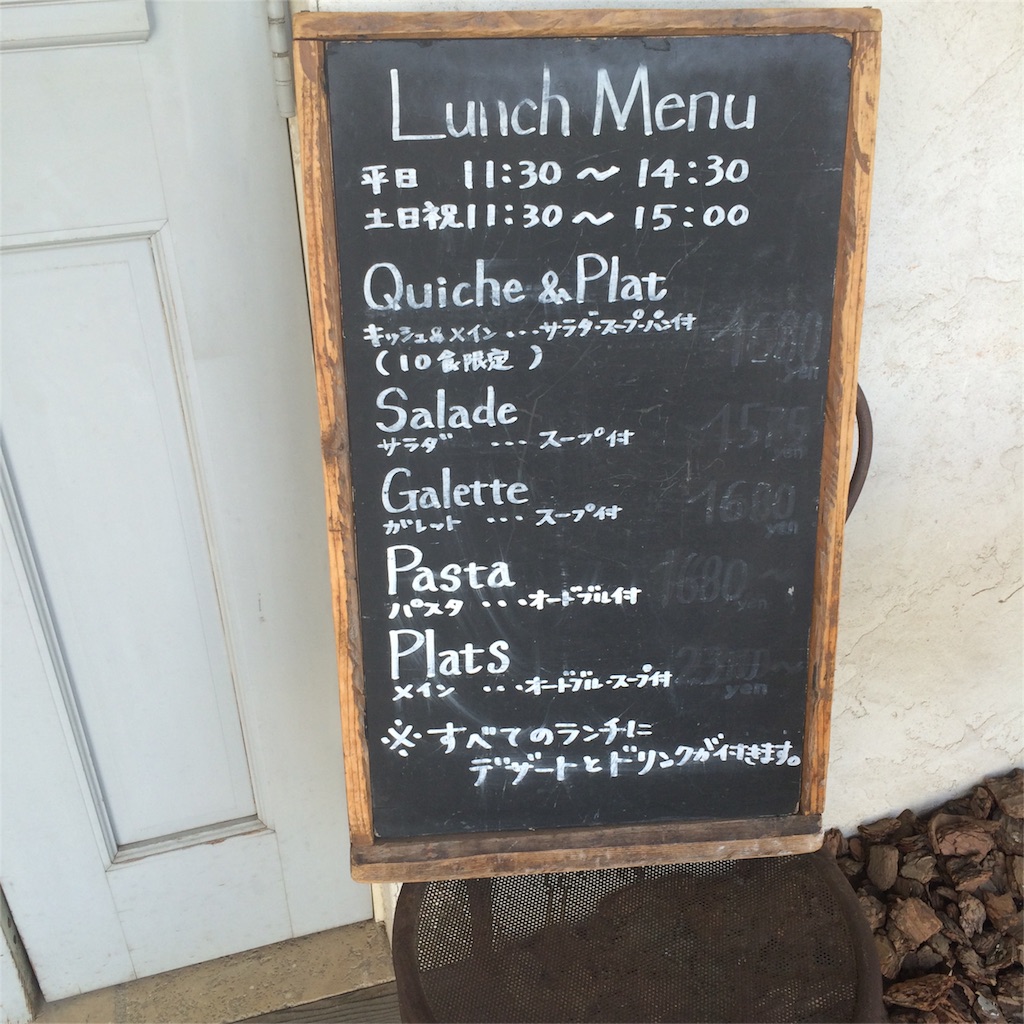 Lunch Menu
平日 11:30 〜 14:30
土日祝 11:30 〜 15:00
Quiche & Plat
キッシュ&メイン ・・・サラダ・スープ・パン付
(10食限定)
yen
Salade
サラダ ・・・ スープ付
yen
Galette
ガレット ・・・ スープ付
1680
yen
Pasta
パスタ ・・・オードブル付
1680〜
yen
Plats
メイン ・・・オードブル・スープ付
yen
※すべてのランチに
デザートとドリンクが付きます。